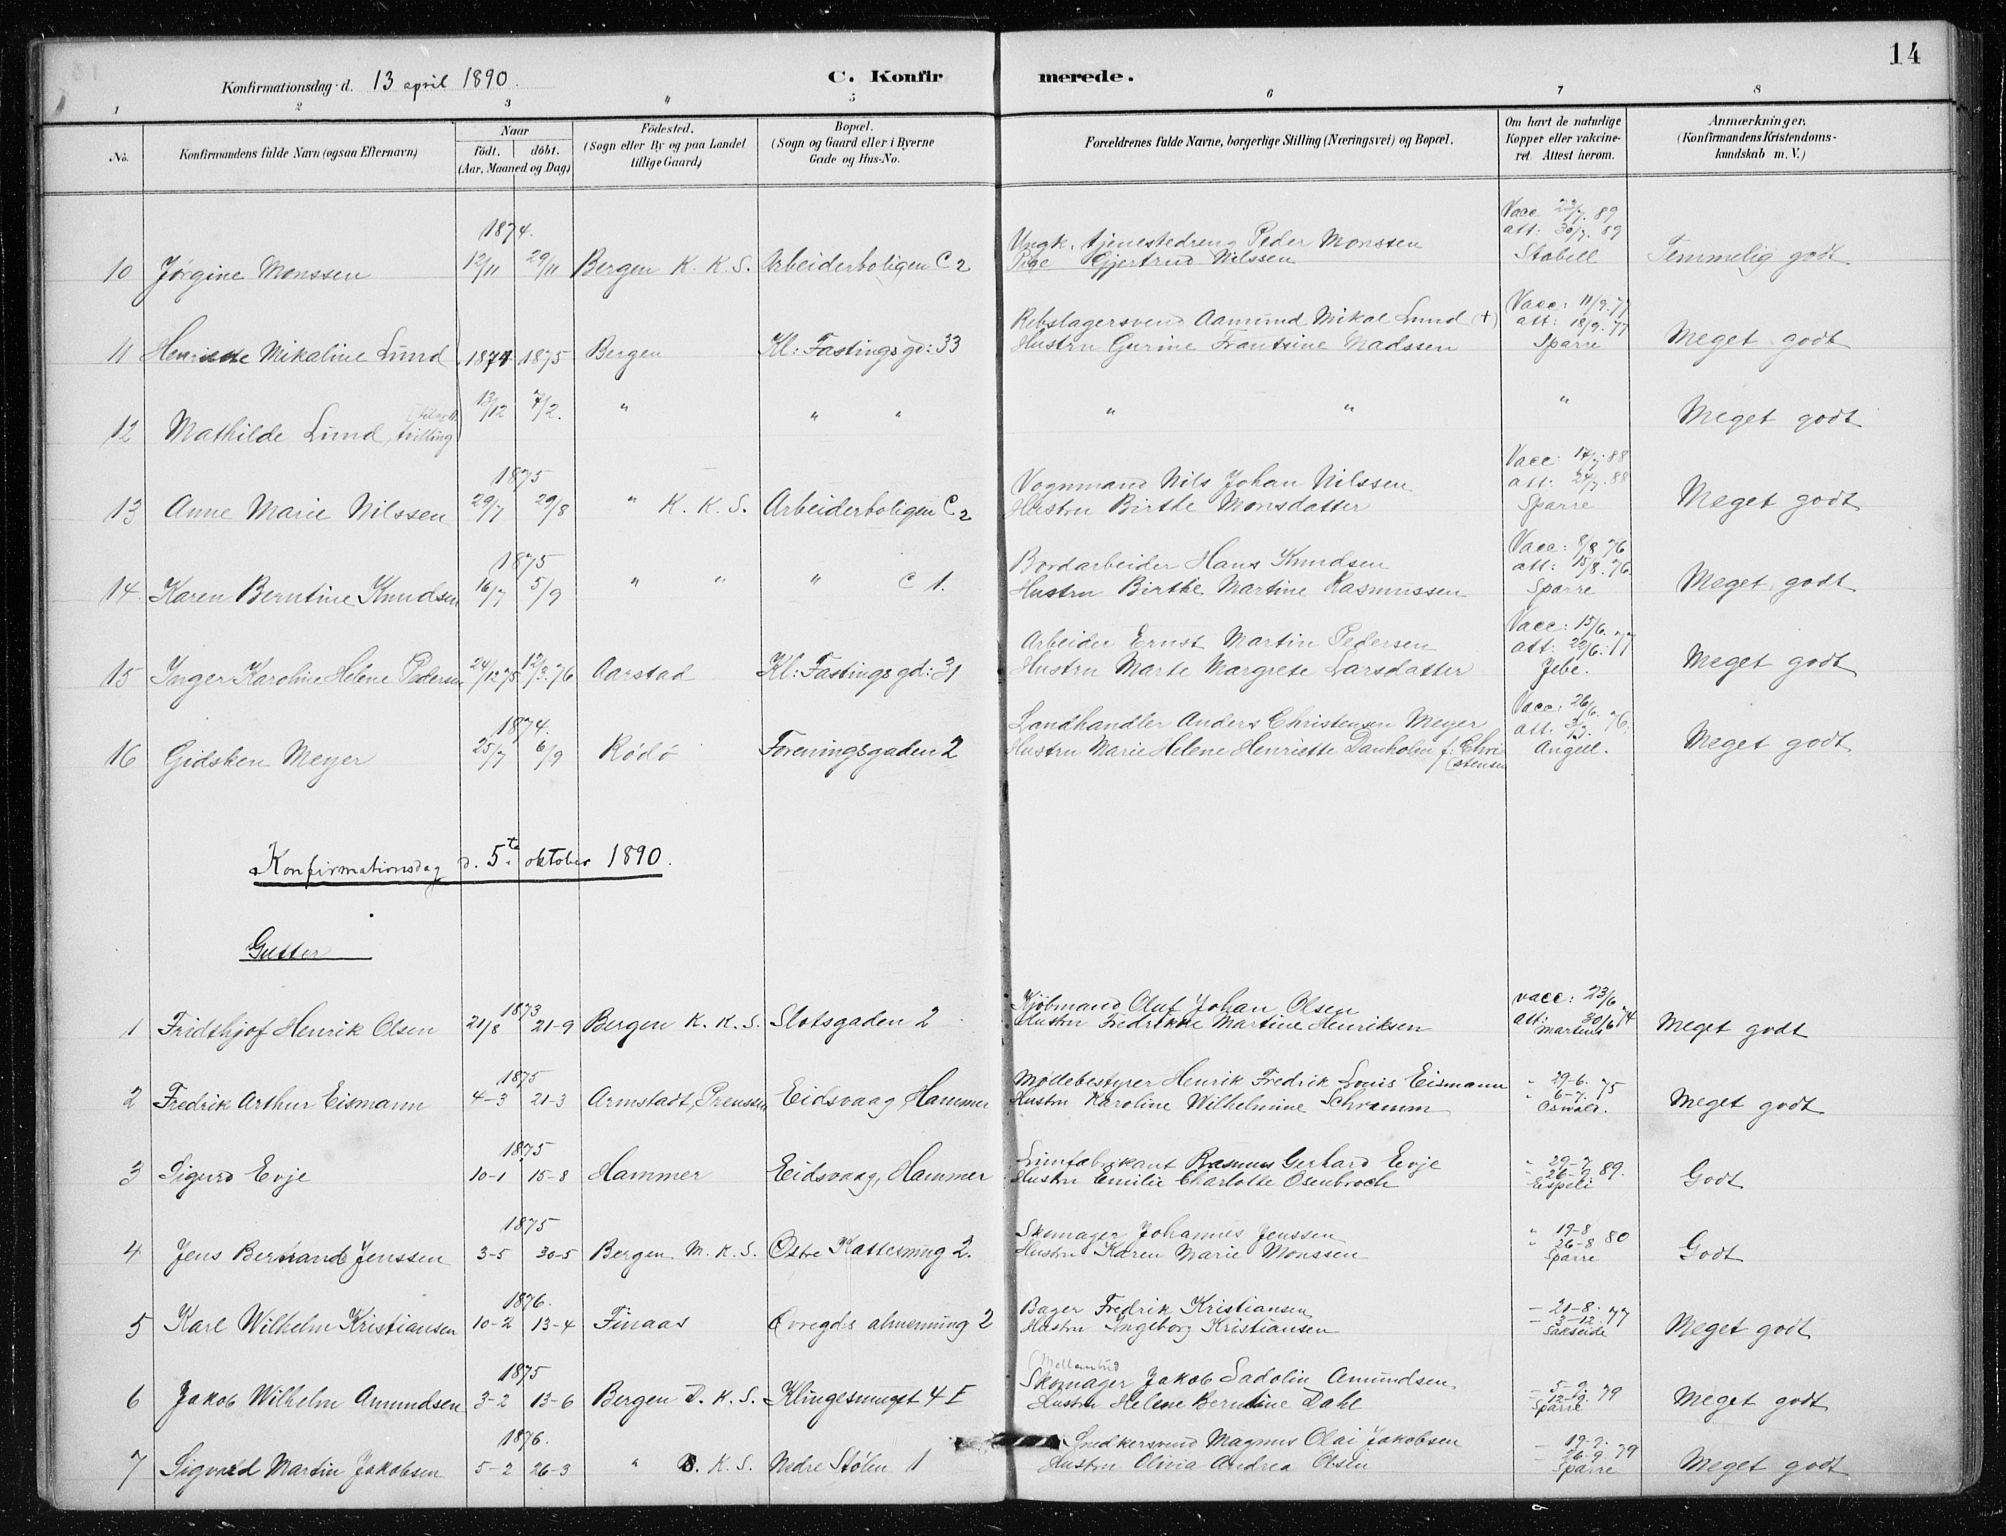 14
Konfirmationsdag d. 13 april 1890. C. Konfirmerede.
1 2 3 " 5 6 7 8
No. Konfirmandens fulde Navn (ogsaa Efternavn) Naar født, døbt. (Aar, Maaned og Dag) Fødested. (Sogn eller By og paa Landet tillige Gaard) Bopæl. (Sogn og Gaard eller i Byerne Gade og Hus-No. Forældrenes fulde Navne, borgerlige Stilling (Næringsvei) og Bopæl. Om havt de naturlige Kopper eller vakcineret. Attest herom. Anmærkninger, (Konfirmandens Kristendomskundskab m. V.)
1874. Vacc 23/7. 89
Ungk. tjenestedreng Peder Monssen att: 30/7. 89
10 Jørgine Monssen 12/11 29/11 Bergen K. K. S. Arbeiderboligen C 2 Pige Gjertrud Nilssen Stabell Temmelig godt.
Rebslagersvend Aamund Mikal Lund (+) Vacc: 11/9. 77 att: 18/9. 77
11 Henriette Mikaline Lund 1874 1875 Bergen Kl: Fastingsgd: 33 Hustru Gurine Frantsine Madssen Sparre Meget godt
12 Mathilde Lund, tvilling 13/12 7/2. " " " " " " Meget godt
1875 Vognmand Nils Johan Nilssen Vacc: 17/7. 88 att: 24/7. 88
13 Anne Marie Nilssen 29/7 29/8 " K. K. S. Arbeiderboligen C 2 Hustru Birthe Monsdatter Sparre Meget godt
1875 Bordarbeider Hans Knudsen Vacc: 8/8. 76 att: 15/8. 76
14 Karen Berntine Knudsen 16/7 5/9 " " " C 1. Hustru Birthe Martine Rasmussen Sparre Meget godt
Arbeider Ernst Martin Pedersen Vacc: 15/6. att: 22/6. 77
15 Inger Karoline Helene Pedersen 24/12 75 12/3. 76 Aarstad Kl: Fastingsgd: 31 Hustru Marte Margrete Larsdatter Jebe. Meget godt
1874. Landhandler Anders Christensen Meyer Vacc: 26/6. att: 76.
16 Gidsken Meyer 25/7 6/9 Rødø Foreningsgaden 2 Hustru Marie Helene Henriette Danholm f. Christensen Angell. Meget godt
Konfirmationsdag d. 5te oktober 1890.
Gutter
1873 Kjøbmand Oluf Johan Olsen vacc: 23/6 att: 30/6 74
1 Fridthjof Henrik Olsen 21/8 21-9 Bergen K. K. S. Slotsgaden 2 Hustru Fredrikke Martine Henriksen Martens Meget godt
1875 Møllebestyrer Henrik Fredrik Louis Eismann " 29-6. " 6-7. 75
2 Fredrik Arthur Eismann 4-3 21-3 Armstadt, Preussen Eidsvaag, Hammer Hustru Karoline Wilhelmine Schramm Oswald. Meget godt
1875 Limfabrikant Rasmus Gerhard Evje " 29-7 " 26-9 89.
3 Sigurd Evje 10-1 15-8 Hammer Eidsvaag, Hammer Hustru Emilie Charlotte Osenbroch Meget Godt
1875 Skomager Johannes Jenssen " 19-8 " 26-8 80
4 Jens Bernhard Jenssen 3-5 30-5 Bergen M. K. S. Østre Kattesmug 2. Hustru Karen Marie Monssen Sparre Godt
1876. Bager Fredrik Kristiansen - 21-8. - 3-12. 77
5 Karl Wilhelm Kristiansen 10-2 13-4 Finaas Øvregds almenning 2 Hustru Ingeborg Kristiansen Sakseide Meget godt
1875 Skomager Jakob Sadolin Amundsen - 5-9. - 12-9. 79
6 Jakob Wilhelm Amundsen 3-2 13-6 Bergen D. K. S. Klingesmuget 4 E Hustru Helene Berntine Dahl Sparre Meget godt
1876. Snedkersvend Magnus Olai Jakobsen - 19-9. - 26-9 79
7 Sigvald Martin Jakobsen 5-2 26-3 " K. S. Nedre Stølen 1 Hustru Olivia Andrea Olsen Sparre Meget godt